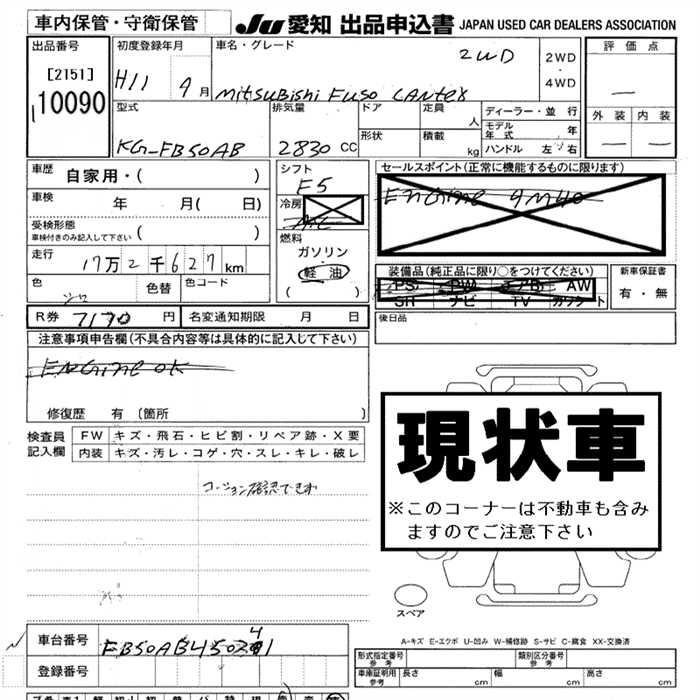 車内保管・守衛保管
JU 愛知 出品申込書 JAPAN USED CAR DEALERS ASSOCIATION
出品番号
[2151]
10090
初度登録年月
H11 9月
車名・グレード
2WD
Mitsubishi Fuso Canter
2WD
・
4WD
評価点
—
外装 内装
— —
型式
KG-FB50AB
排気量
2830 CC
ドア
形状
定員
人
積載
kg
ディーラー・並行
モデル年式 年
ハンドル 左・右
車歴 自家用・( )
車検 年 月( 日)
受検形態
車検付きのみ記入して下さい ( )
走行 17万2千627km
色
シロ
色替
色コード
シフト
F5
冷房
燃料
ガソリン
・
軽油
( )
セールスポイント(正常に機能するものに限ります)
Engine 4M40
装備品(純正品に限り〇をつけてください)
PS PW AB AW
SR ナビ TV カワシート
新車保証書
有・無
R券 7170 円 名変通知期限 月 日
後日品
注意事項申告欄(不具合内容等は具体的に記入して下さい)
Engine OK
修復歴 有(箇所 )
検査員
記入欄
FW キズ・飛石・ヒビ割・リペア跡・X要
内装 キズ・汚レ・コゲ・穴・スレ・キレ・破レ
コーション確認できず
現状車
※このコーナーは不動車も含み
ますのでご注意下さい
スペア
A-キズ E-エクボ U-凹み W-補修跡 S-サビ C-腐食 XX-交換済
車台番号 FB50AB450241
登録番号
形式指定番号
参考
類別区分番号
参考
車庫証明用
参考
長さ cm 幅 cm 高さ cm